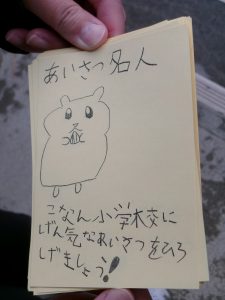 あいさつ名人
こなん小学校に
げん気なあいさつをひろ
げましょう!